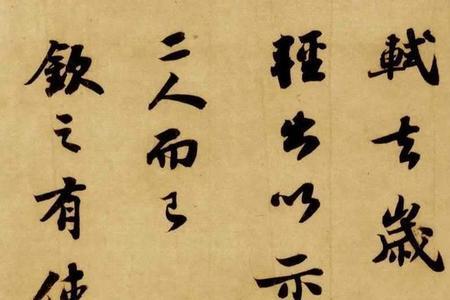 軾去歲
輕出以示
二人而已
欽之有使